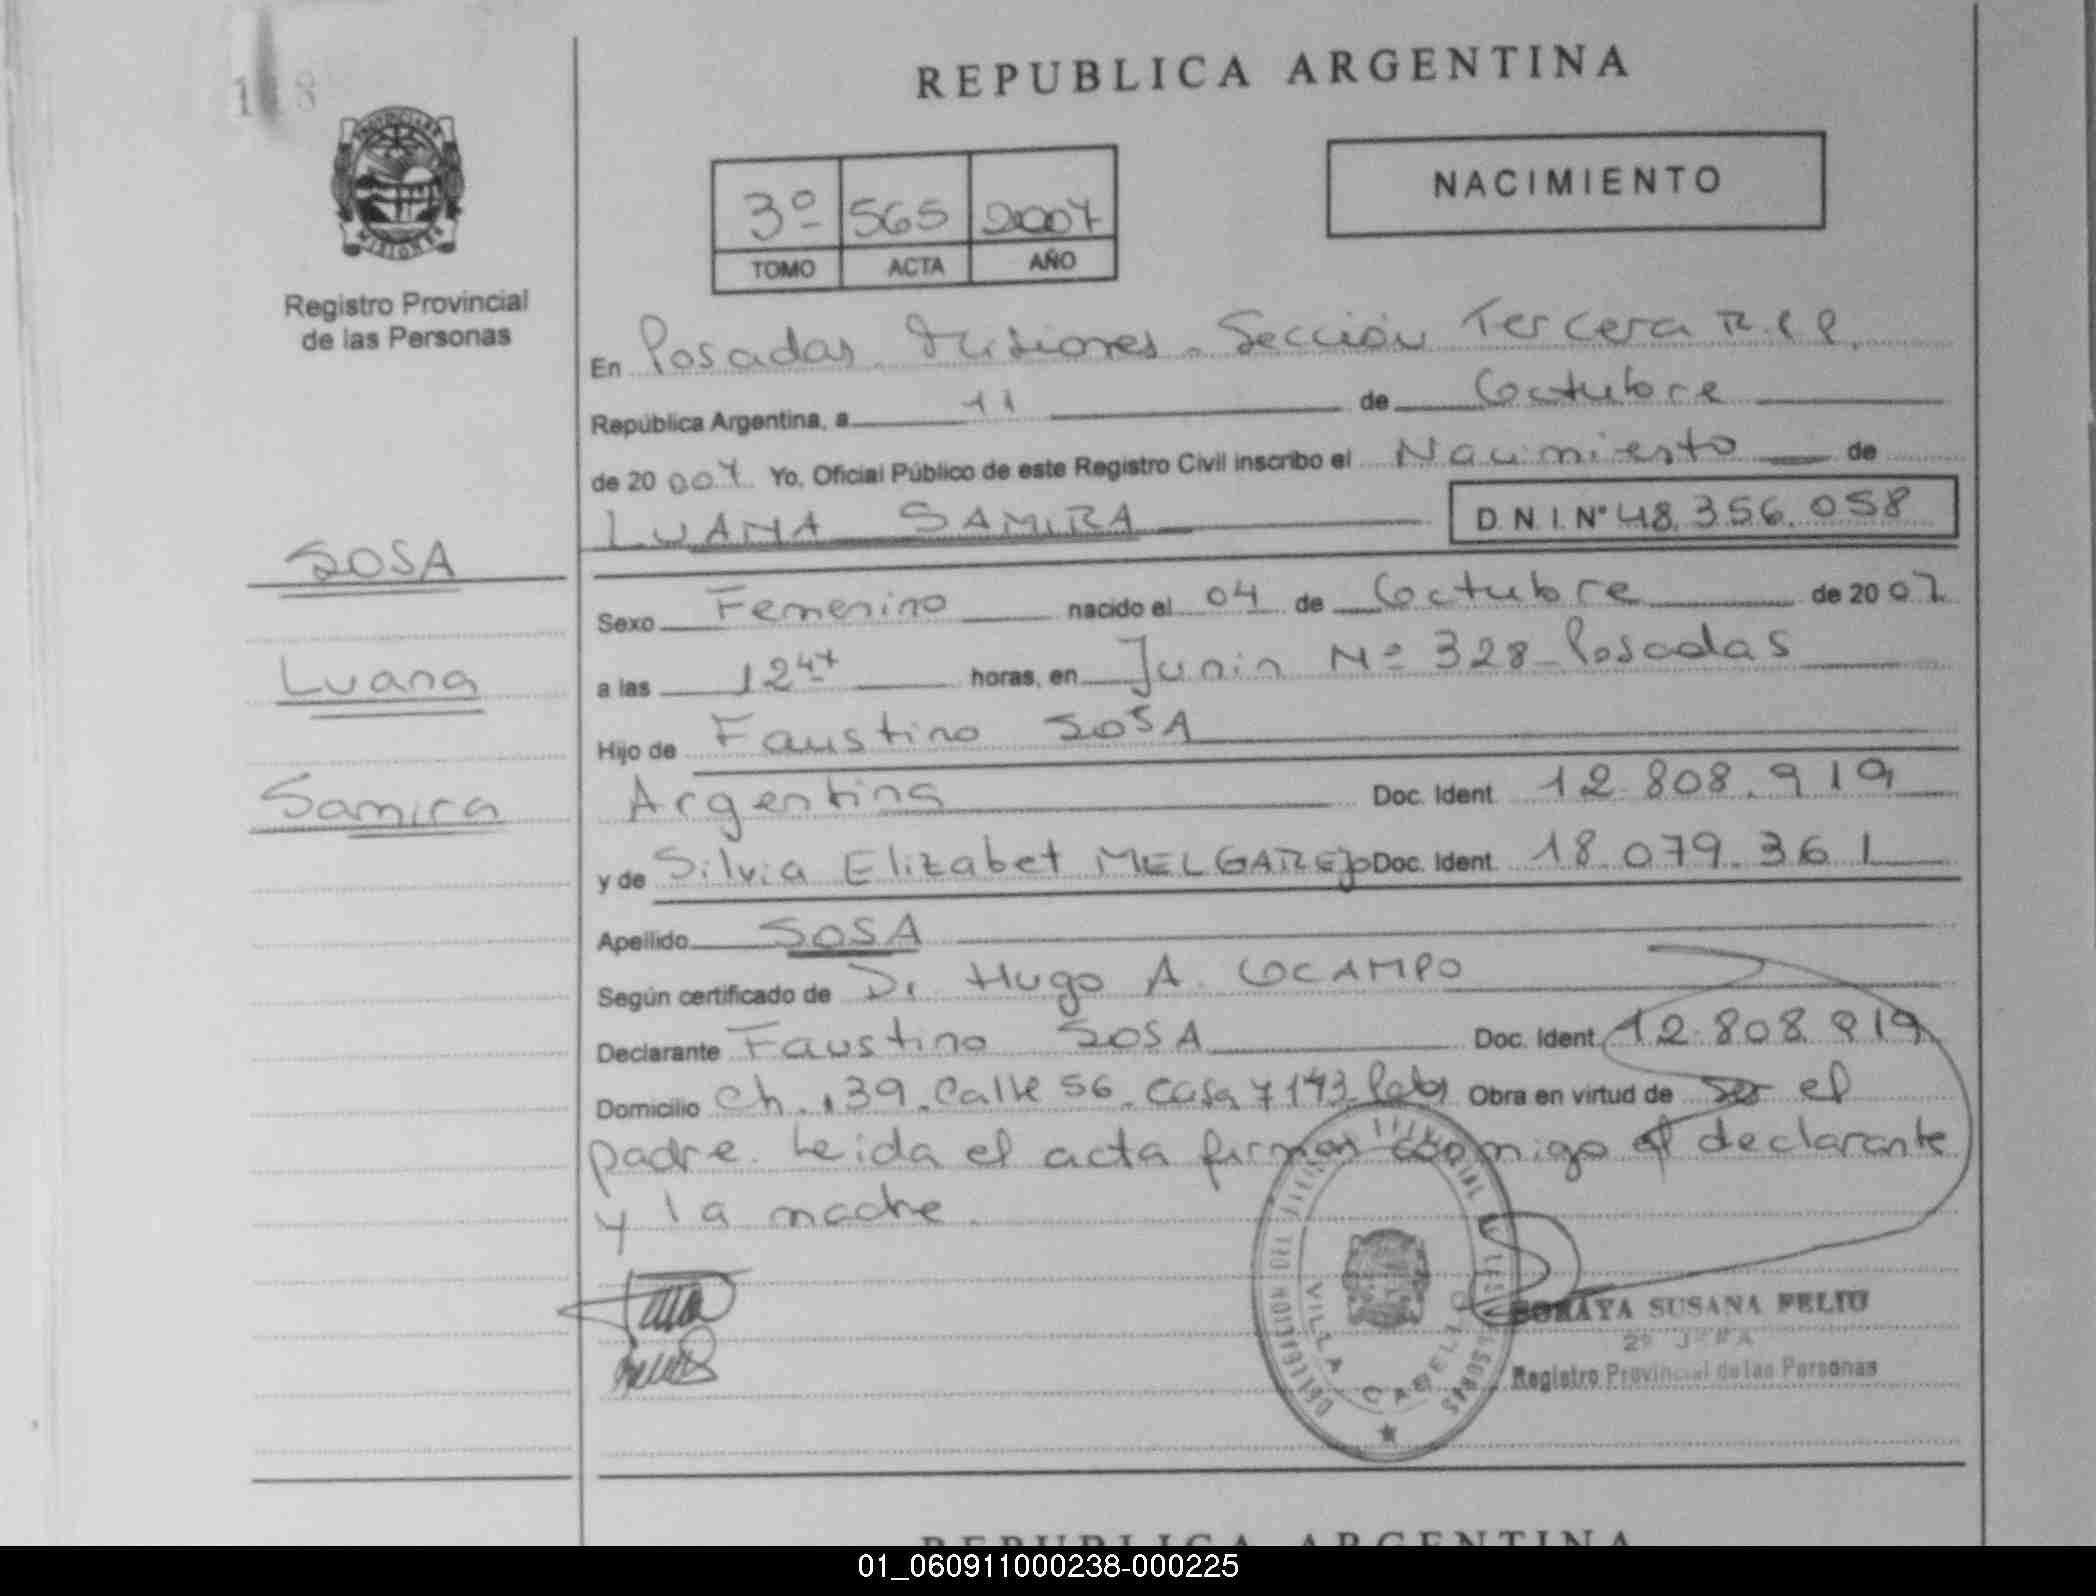 REPUBLICA ARGENTINA
PROVINCIA DE
MISIONES
Registro Provincial
de las Personas
3º 565 2007
TOMO ACTA AÑO
NACIMIENTO
En Posadas Misiones - Sección Tercera R.P.P.
República Argentina, a 11 de Octubre
de 20 007 Yo, Oficial Público de este Registro Civil inscribo el Nacimiento de
LUANA SAMIRA D.N.I.Nº 48.356.058
SOSA
Luana
Samira
Sexo Femenino nacido el 04 de Octubre de 20 07
a las 12 47 horas, en Junin Nº 328 - Posadas
Hijo de Faustino SOSA
Argentina Doc. Ident. 12.808.919
y de Silvia Elizabet MELGAREJO Doc. Ident. 18.079.361
Apellido SOSA
Según certificado de Dr Hugo A. OCAMPO
Declarante Faustino SOSA Doc. Ident. 12.808.919
Domicilio Ch. 139 - Calle 56 - Casa 7143 Obra en virtud de ser el
padre. Leida el acta firman conmigo el declarante
y la madre.
DELEGACION DEL REGISTRO PROVINCIAL DE LAS PERSONAS
VILLA CABELLO
SORAYA SUSANA FELIU
2º JEFA
Registro Provincial de las Personas
REPUBLICA ARGENTINA
01_060911000238-000225